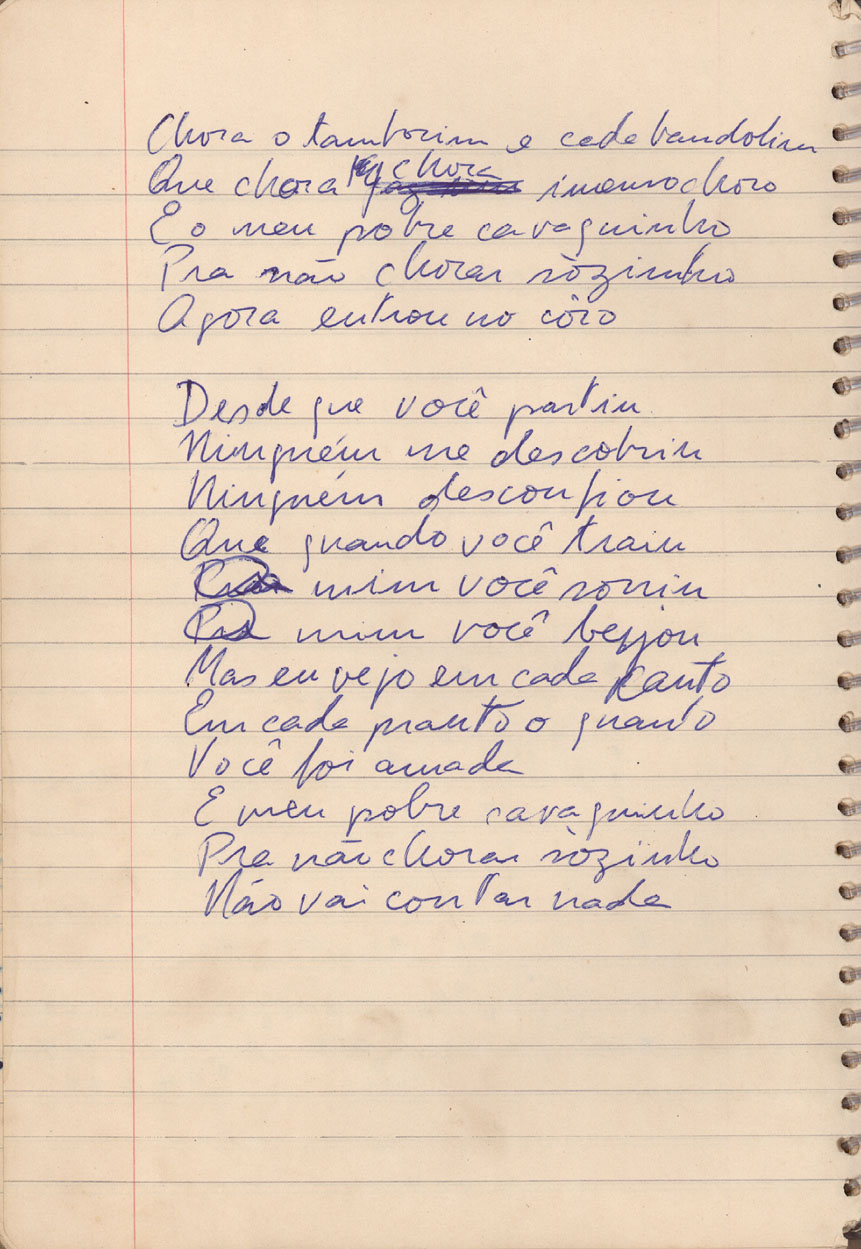 Chora o tamborim e cada bandolim
Que chora chora imenso choro
E o meu pobre cavaquinho
Pra não chorar sòzinho
Agora entrou no côro
Desde que você partiu
Ninguém me descobriu
Ninguém desconfiou
Que quando você traiu
Pra mim você sorriu
Pra mim você beijou
Mas eu vejo em cada canto
Em cada pranto o quanto
Você foi amada
E meu pobre cavaquinho
Pra não chorar sòzinho
Não vai contar nada